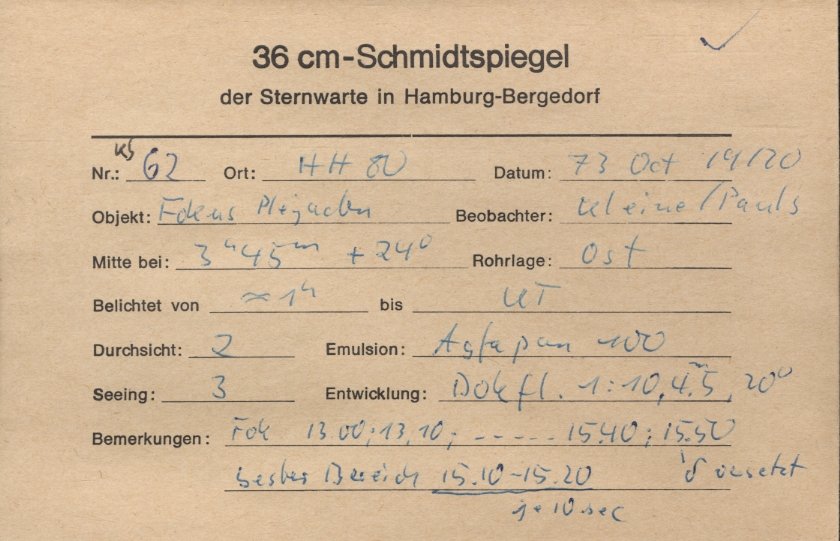 36 cm-Schmidtspiegel
der Sternwarte in Hamburg-Bergedorf
Nr.: KS 62 Ort: HH 80 Datum: 73 Oct 19/20
Objekt: Fokus Plejaden Beobachter: Kleine/Pauls
Mitte bei: 3h 45m +24° Rohrlage: Ost
Belichtet von ≈1h bis UT
Durchsicht: 2 Emulsion: Agfapan 100
Seeing: 3 Entwicklung: Dokfl. 1:10, 4.5m, 20°
Bemerkungen: Fok 13.00; 13.10; ----- 15.40; 15.50
bester Bereich 15.10-15.20 versetzt
je 10 sec